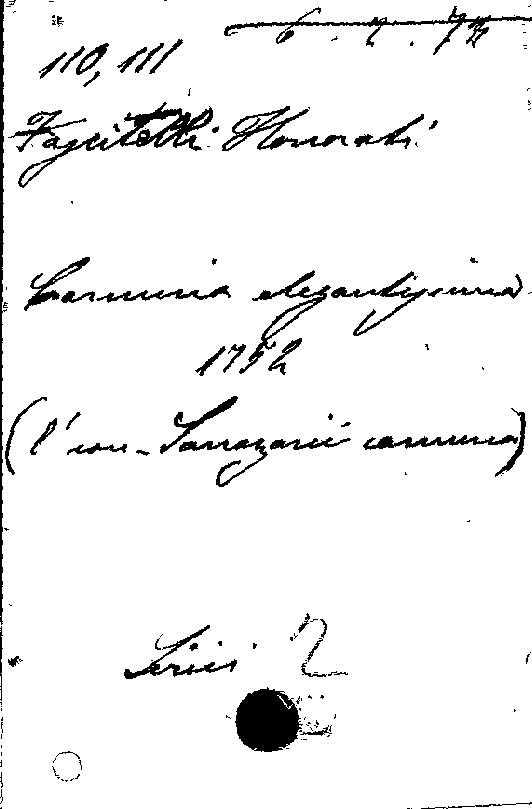 6.2.72
110,111
Fascitelli Honorati
Carmina elegantissima
1752
(l' con - Sannazarii carmina)
Series 2